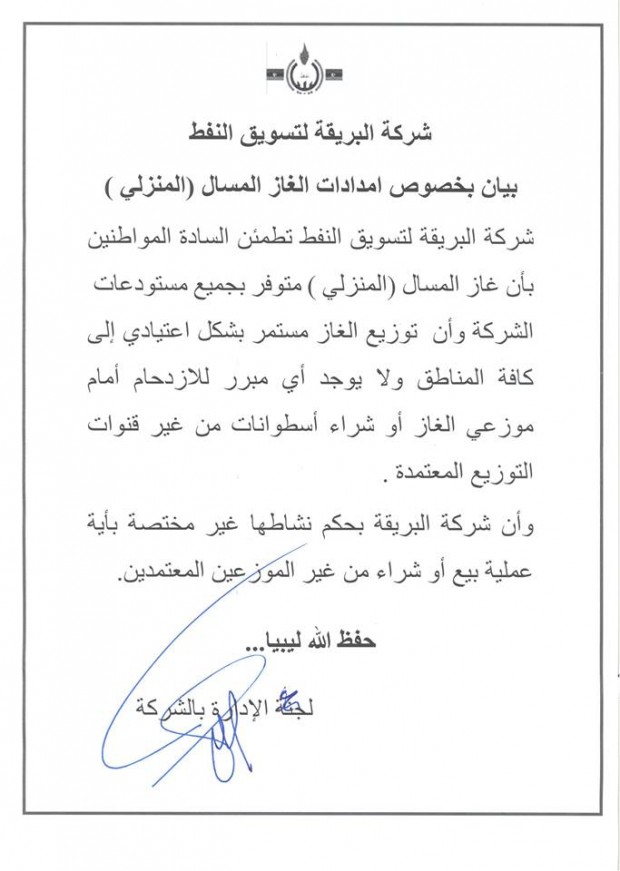 شركة البريقة لتسويق النفط
بيان بخصوص امدادات الغاز المسال (المنزلي )
شركة البريقة لتسويق النفط تطمئن السادة المواطنين
بأن غاز المسال (المنزلي ) متوفر بجميع مستودعات
الشركة وأن توزيع الغاز مستمر بشكل اعتيادي إلى
كافة المناطق ولا يوجد أي مبرر للازدحام أمام
موزعي الغاز أو شراء أسطوانات من غير قنوات
التوزيع المعتمدة .
وأن شركة البريقة بحكم نشاطها غير مختصة بأية
عملية بيع أو شراء من غير الموزعين المعتمدين.
حفظ الله ليبيا...
لجنة الإدارة بالشركة